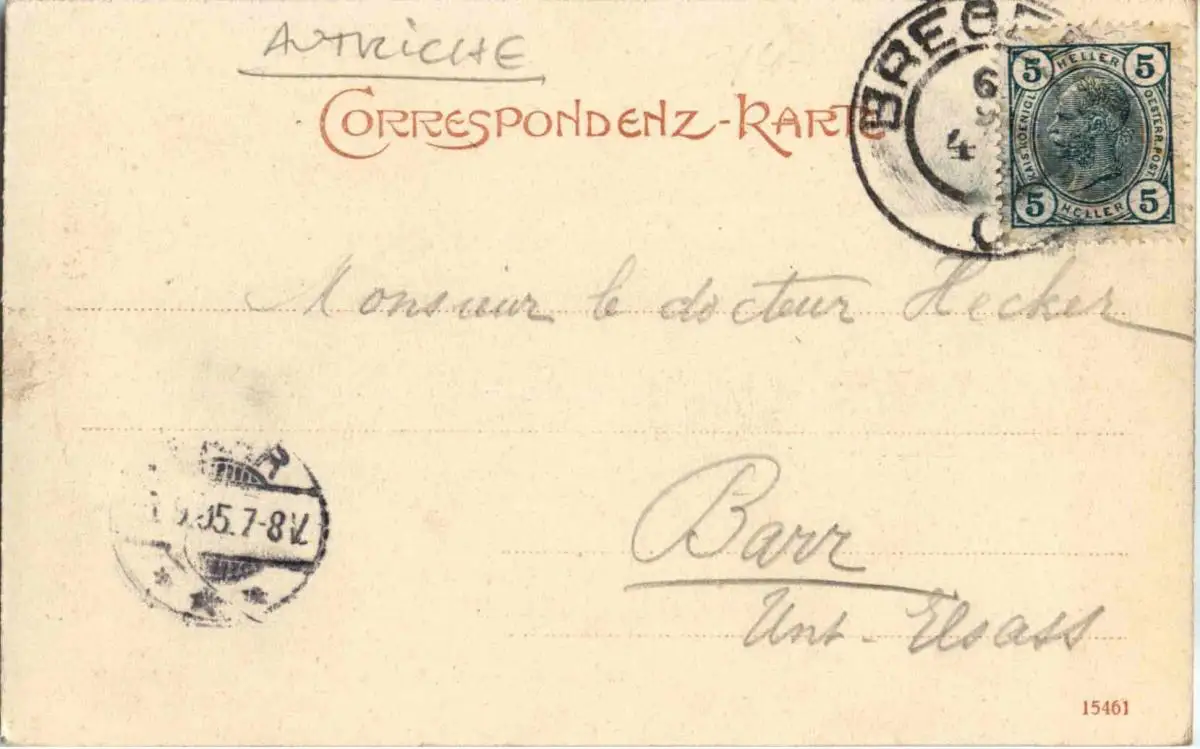 AUTRICHE
CORRESPONDENZ-KARTE
6
4
5 HELLER 5
KAIS. KOENIGL. OESTERR. POST
5 HELLER 5
Monsieur le docteur Hecker
05.7-8V.
Barr
Unt-Elsass
15461